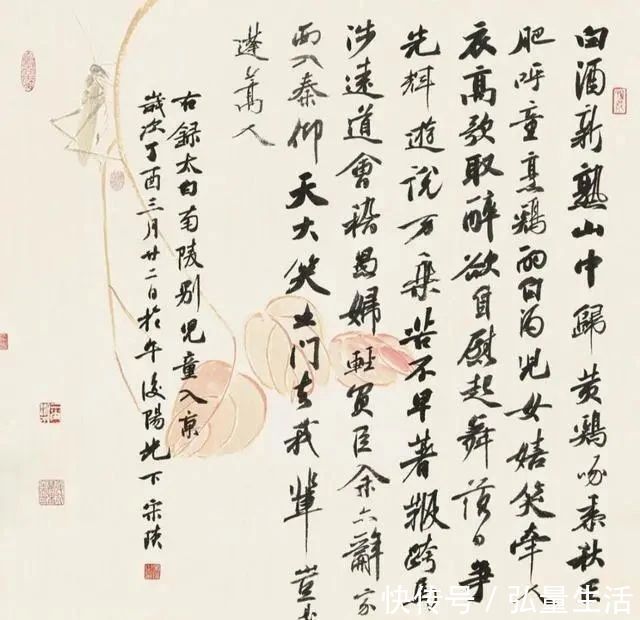 白酒新熟山中歸黄鷄啄黍秋正
肥呼童烹鷄酌白酒兒女嬉笑牽人
衣高歌取醉欲自慰起舞落日争
光輝遊說万乘苦不早著鞭跨馬
涉遠道會稽愚婦輕買臣余亦辭家
西入秦仰天大笑出门去我輩豈是
蓬蒿人
右録太白南陵别兒童入京
歲次丁酉三月廿二日於午後陽光下
快传号 / 弘量生活